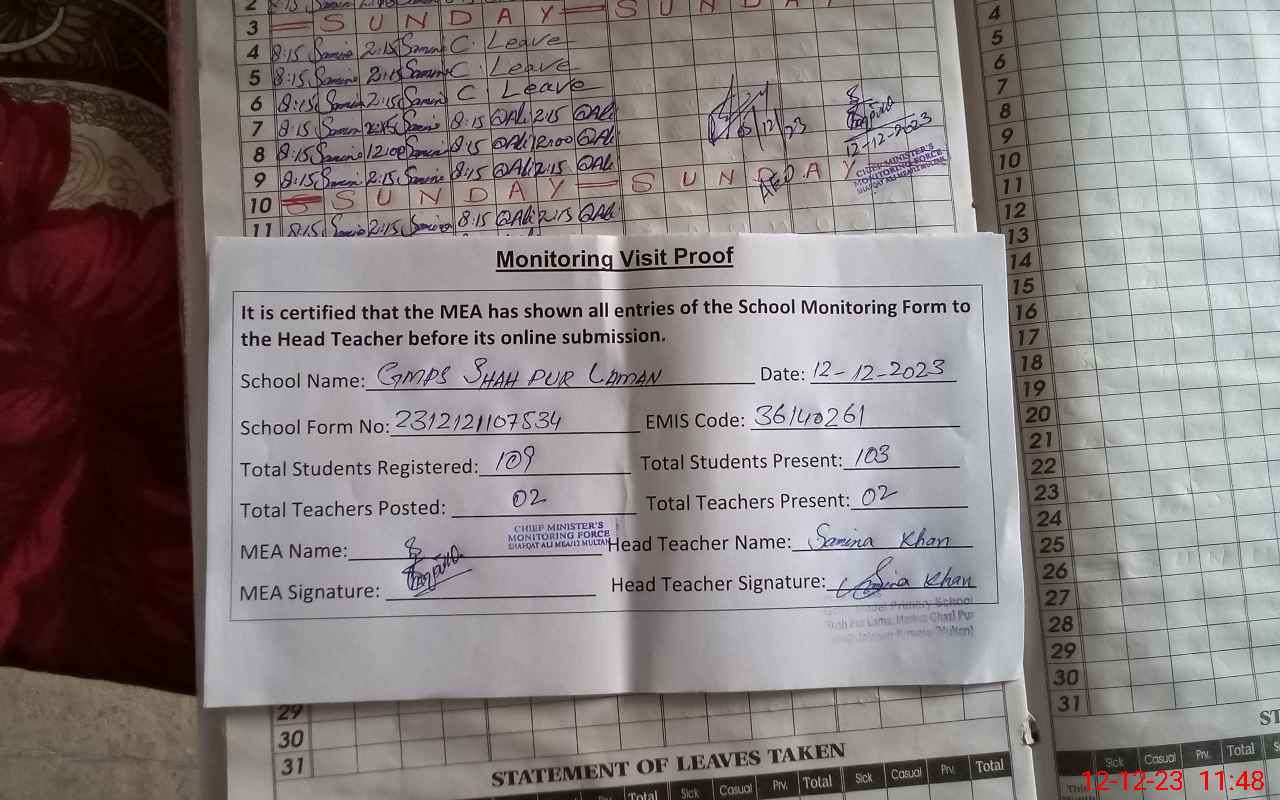 3 S U N D A Y S U N D A Y
4 8:15 Samina 2:15 Samina C. Leave
5 8:15 Samina 2:15 Samina C. Leave
6 8:15 Samina 2:15 Samina C. Leave
7 8:15 Samina 2:15 Samina 8:15 @Ali 2:15 @Ali
8 8:15 Samina 12:00 Samina 8:15 @Ali 12:00 @Ali
9 8:15 Samina 2:15 Samina 8:15 @Ali 2:15 @Ali
10 S U N D A Y S U N D A Y
11 8:15 Samina 2:15 Samina 8:15 @Ali 2:15 @Ali
12-12-2023
CHIEF MINISTER'S
MONITORING FORCE
Monitoring Visit Proof
It is certified that the MEA has shown all entries of the School Monitoring Form to
the Head Teacher before its online submission.
School Name: GMPS SHAH PUR LAMAN Date: 12-12-2023
School Form No: 2312121107534 EMIS Code: 36140261
Total Students Registered: 109 Total Students Present: 103
Total Teachers Posted: 02 Total Teachers Present: 02
CHIEF MINISTER'S
MONITORING FORCE
SHAFQAT ALI MEA/12 MULTAN
MEA Name: Head Teacher Name: Samina Khan
MEA Signature: Head Teacher Signature: Samina Khan
Model Primary School
4
5
6
7
8
9
10
11
12
13
14
15
16
17
18
19
20
21
22
23
24
25
26
27
28
29
30
31
29
30
31
STATEMENT OF LEAVES TAKEN
Total Sick Casual Prv. Total Sick Casual Prv. Total
Sick Casual Prv. Total
12-12-23 11:48